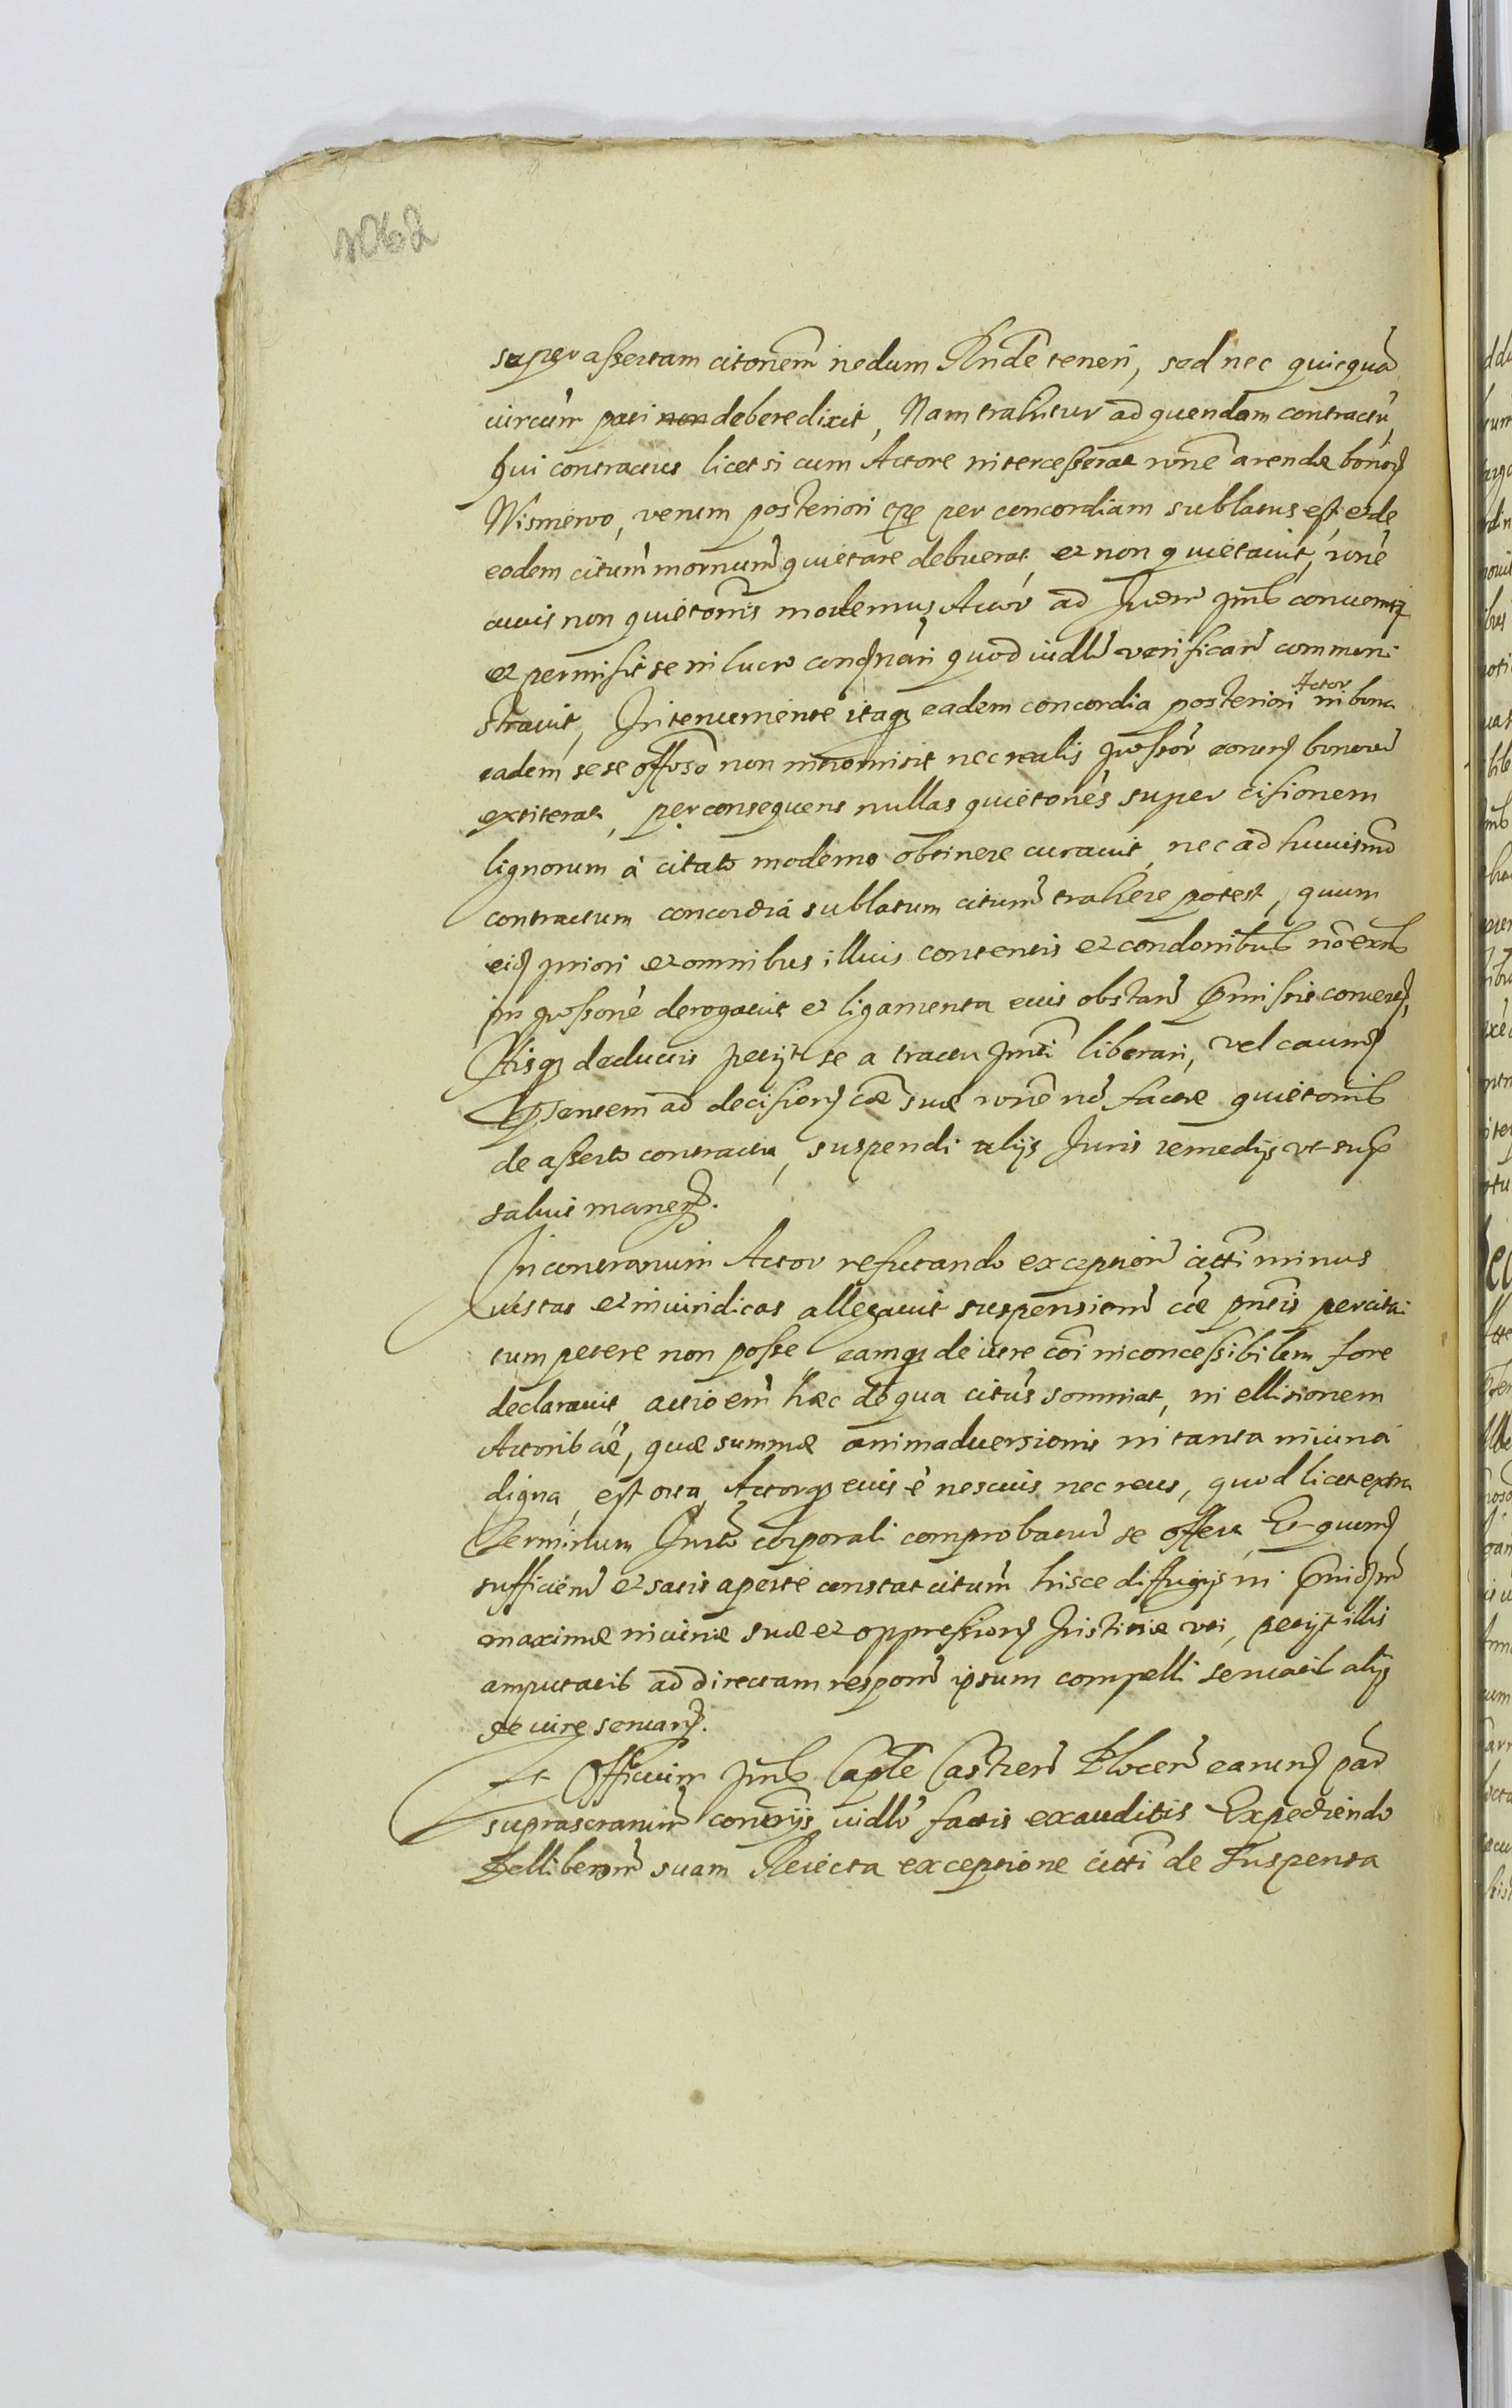 1062
super assertam citonem nedum Rndē teneri, sed nec quicquā
circum pati non debere dixit, Nam trahitur ad quendam contractū,
Qui contractus licet si cum Actore intercesserat rōne arendæ bonorȝ
Wismewo, verum posteriori ope per concordiam sublatus est, et de
eodem citum mornum quietare debuerat et non quietauit, rōne
cuius non quietonis modernus Actor ad pns conuenit
et permisit se in lucro condnari quod iudlr verificare commini
strauit, Interuemente itaq eadem concordia posteriori Actor in bona
eadem sese offoso non intromisit nec realis possor eorund bonorum
extiterat, per consequens nullas quietones super cisionem
lignorum à citato moderno obtinere curauit, nec ad huiusmd
contractum concordia sublatum citum trahere potest, quum
eid priori et omnibus illius contentis et condonibus
in possone derogauit et ligamenta eius obstan pmissis conuen,
Hisq deductis petijt se a tractu pnti liberari, vel caum
psentem ad decision cæ suæ rone no factæ quietonis
de asserto contractu, suspendi alijs Juris remedijs vt sup
saluis manen.
In contrarium Actor refutando exception citti minus
iustas et iniuridicas allegauit suspensionem cæ pntis per cita
tum petere non posse eamq de iure coi inconcessibilem fore
declarauit, actio em hæc de qua citus somniat, in ellisionem
Actorib cæ, quæ summæ animaduersionis in tanta iniuria
digna, est orta, Actorq eius è nescius nec reus, quod licet extra
Terminum Jurto corporali comprobatur se offert, Ex quum
sufficien et satis aperte constat citum hisce diffugijs in pnidm
maximæ iniuriæ suæ et oppression Justitiæ vti, petijt illis
amputatis ad directam respon ipsum compelli seruatis alijs
de iure seruan.
Et Officium pns Caple Castren Plocen earund par
suprascranum conterijs iudlr factis exauditis Expediendo
Delliberonem suam Reiecta exceptione citti de Suspensa